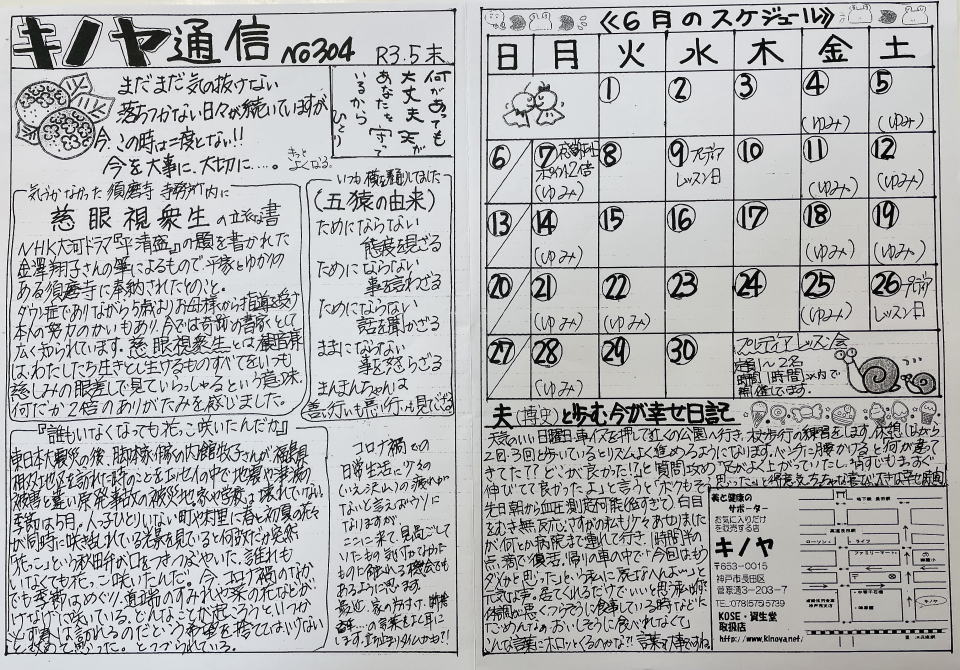 キノヤ通信 No304 R3.5末
まだまだ気の抜けない
落ちつかない日々が続いていますが
今、この時は二度とない!!
今を大事に、大切に…。
きっと
よくなる。
何があっても
大丈夫 天が
あなたを守って
いるから
ひとり
気づかなかった 須磨寺 寺務所町内に
慈眼視衆生の立派な書
NHK大河ドラマ『平清盛』の題を書かれた
金澤翔子さんの筆によるもので、平家とゆかりの
ある須磨寺に奉納されたとのこと。
ダウン症でありながら5歳よりお母様から指導を受け
本人の努力のかいもあり、今では奇跡の書家として
広く知られています。慈眼視衆生とは、観音様
は、わたしたち生きとし生けるものすべてをいつも
慈しみの眼差しで見ていらっしゃるという意味。
何だか2倍のありがたみを感じました。
いつも横を通りしてました
(五猿の由来)
ためにならない
態度を見ざる
ためにならない
事を言わざる
ためにならない
話を聞かざる
ままにならない
事を怒らざる
まんまんちゃんは
善い行いも悪い行いも見てござる
『誰もいなくなっても花っこ咲いたんだか』
東日本大震災の後、脚本家作詞の大館牧子さんが福島県
相双地区を訪れた時のことをエッセイの中で地震や津波の
被害と違い原発事故の被災地は家や音楽は壊れていない
季節は5月。人っ子ひとりいない町や村里に春と初夏の花々
が同時に咲き乱れている光景を見ていると何故だか突然
「花っこ」という秋田弁が口をつきつぶやいた。誰も
いなくても花っこ咲いたんだ。今、コロナ禍のなか
でも季節はめぐり、道端のすみれや菜の花などが
けなげに咲いている。どんなことが起ころうといつか
コロナ禍での
日常生活に少々の
(いえ沢山)の疲れが
ないと言えばウソに
なりますが
ここに来て、見過ごして
いたもの気付かなかった
ものに触れる機会でも
あるように思います。
《6月のスケジュール》
日 月 火 水 木 金 土
① ② ③ ④ ⑤
(ゆみ) (ゆみ)
⑥ ⑦ ⑧ ⑨ プレディア レッスン日 ⑩ ⑪ ⑫
ポイント2倍
(ゆみ) (ゆみ) (ゆみ)
⑬ ⑭ ⑮ ⑯ ⑰ ⑱ ⑲
(ゆみ) (ゆみ) (ゆみ)
⑳ ㉑ ㉒ ㉓ ㉔ ㉕ ㉖ プレディア レッスン日
(ゆみ) (ゆみ) (ゆみ)
㉗ ㉘ ㉙ ㉚
(ゆみ)
プレディアレッスン会
定員1~2名
時間1時間以内で
開催しています。
夫(博史)と歩む今が幸せ日記
天気のいい日曜日、車イスを押して近くの公園へ行き、杖歩行の練習をします。休憩しながら
2回・3回と歩いているとリズムよく進めるようになります。ベンチに腰かけると「何が違って
きてた??どこが良かった!?」と質問攻め。「足がよく上がっていたし、背すじもまっすぐ
伸びてて良かったよ」と言うと「ボクもそう
先日朝から血圧測定可能(低すぎて)白目
をむき無反応。さすがの私も少々あせりました
が何とか病院まで連れて行き1時間半の
点滴で復活。帰りの車の中で「今回はもう
ダメかと思った」という私に「死なへんよ~」と
元気な声。「居てくれるだけでいい」と思う
「ごめんな。おいしそうに食べれなくて」
そんな言葉にホロッとくるのかな!?言葉って大事ですね。
美と健康の
サポーター
お気に入りだけ
を販売する店
キノヤ
〒653-0015
神戸市長田区
菅原通3-203-7
TEL.078(579)5739
KOSE・資生堂
取扱店
http://www.kinoya.net/
地下鉄 長田駅
高速長田駅
ローソン
ライフ
ファミリーマート
キノヤ
JR兵庫駅